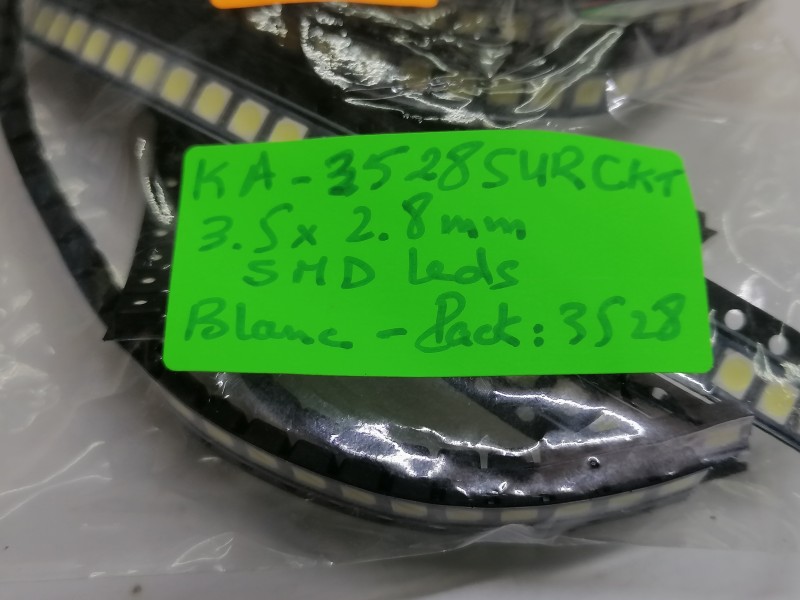 KA-3528SURCKT
3.5x2.8mm
SMD Leds
Blanc - Pack: 3528